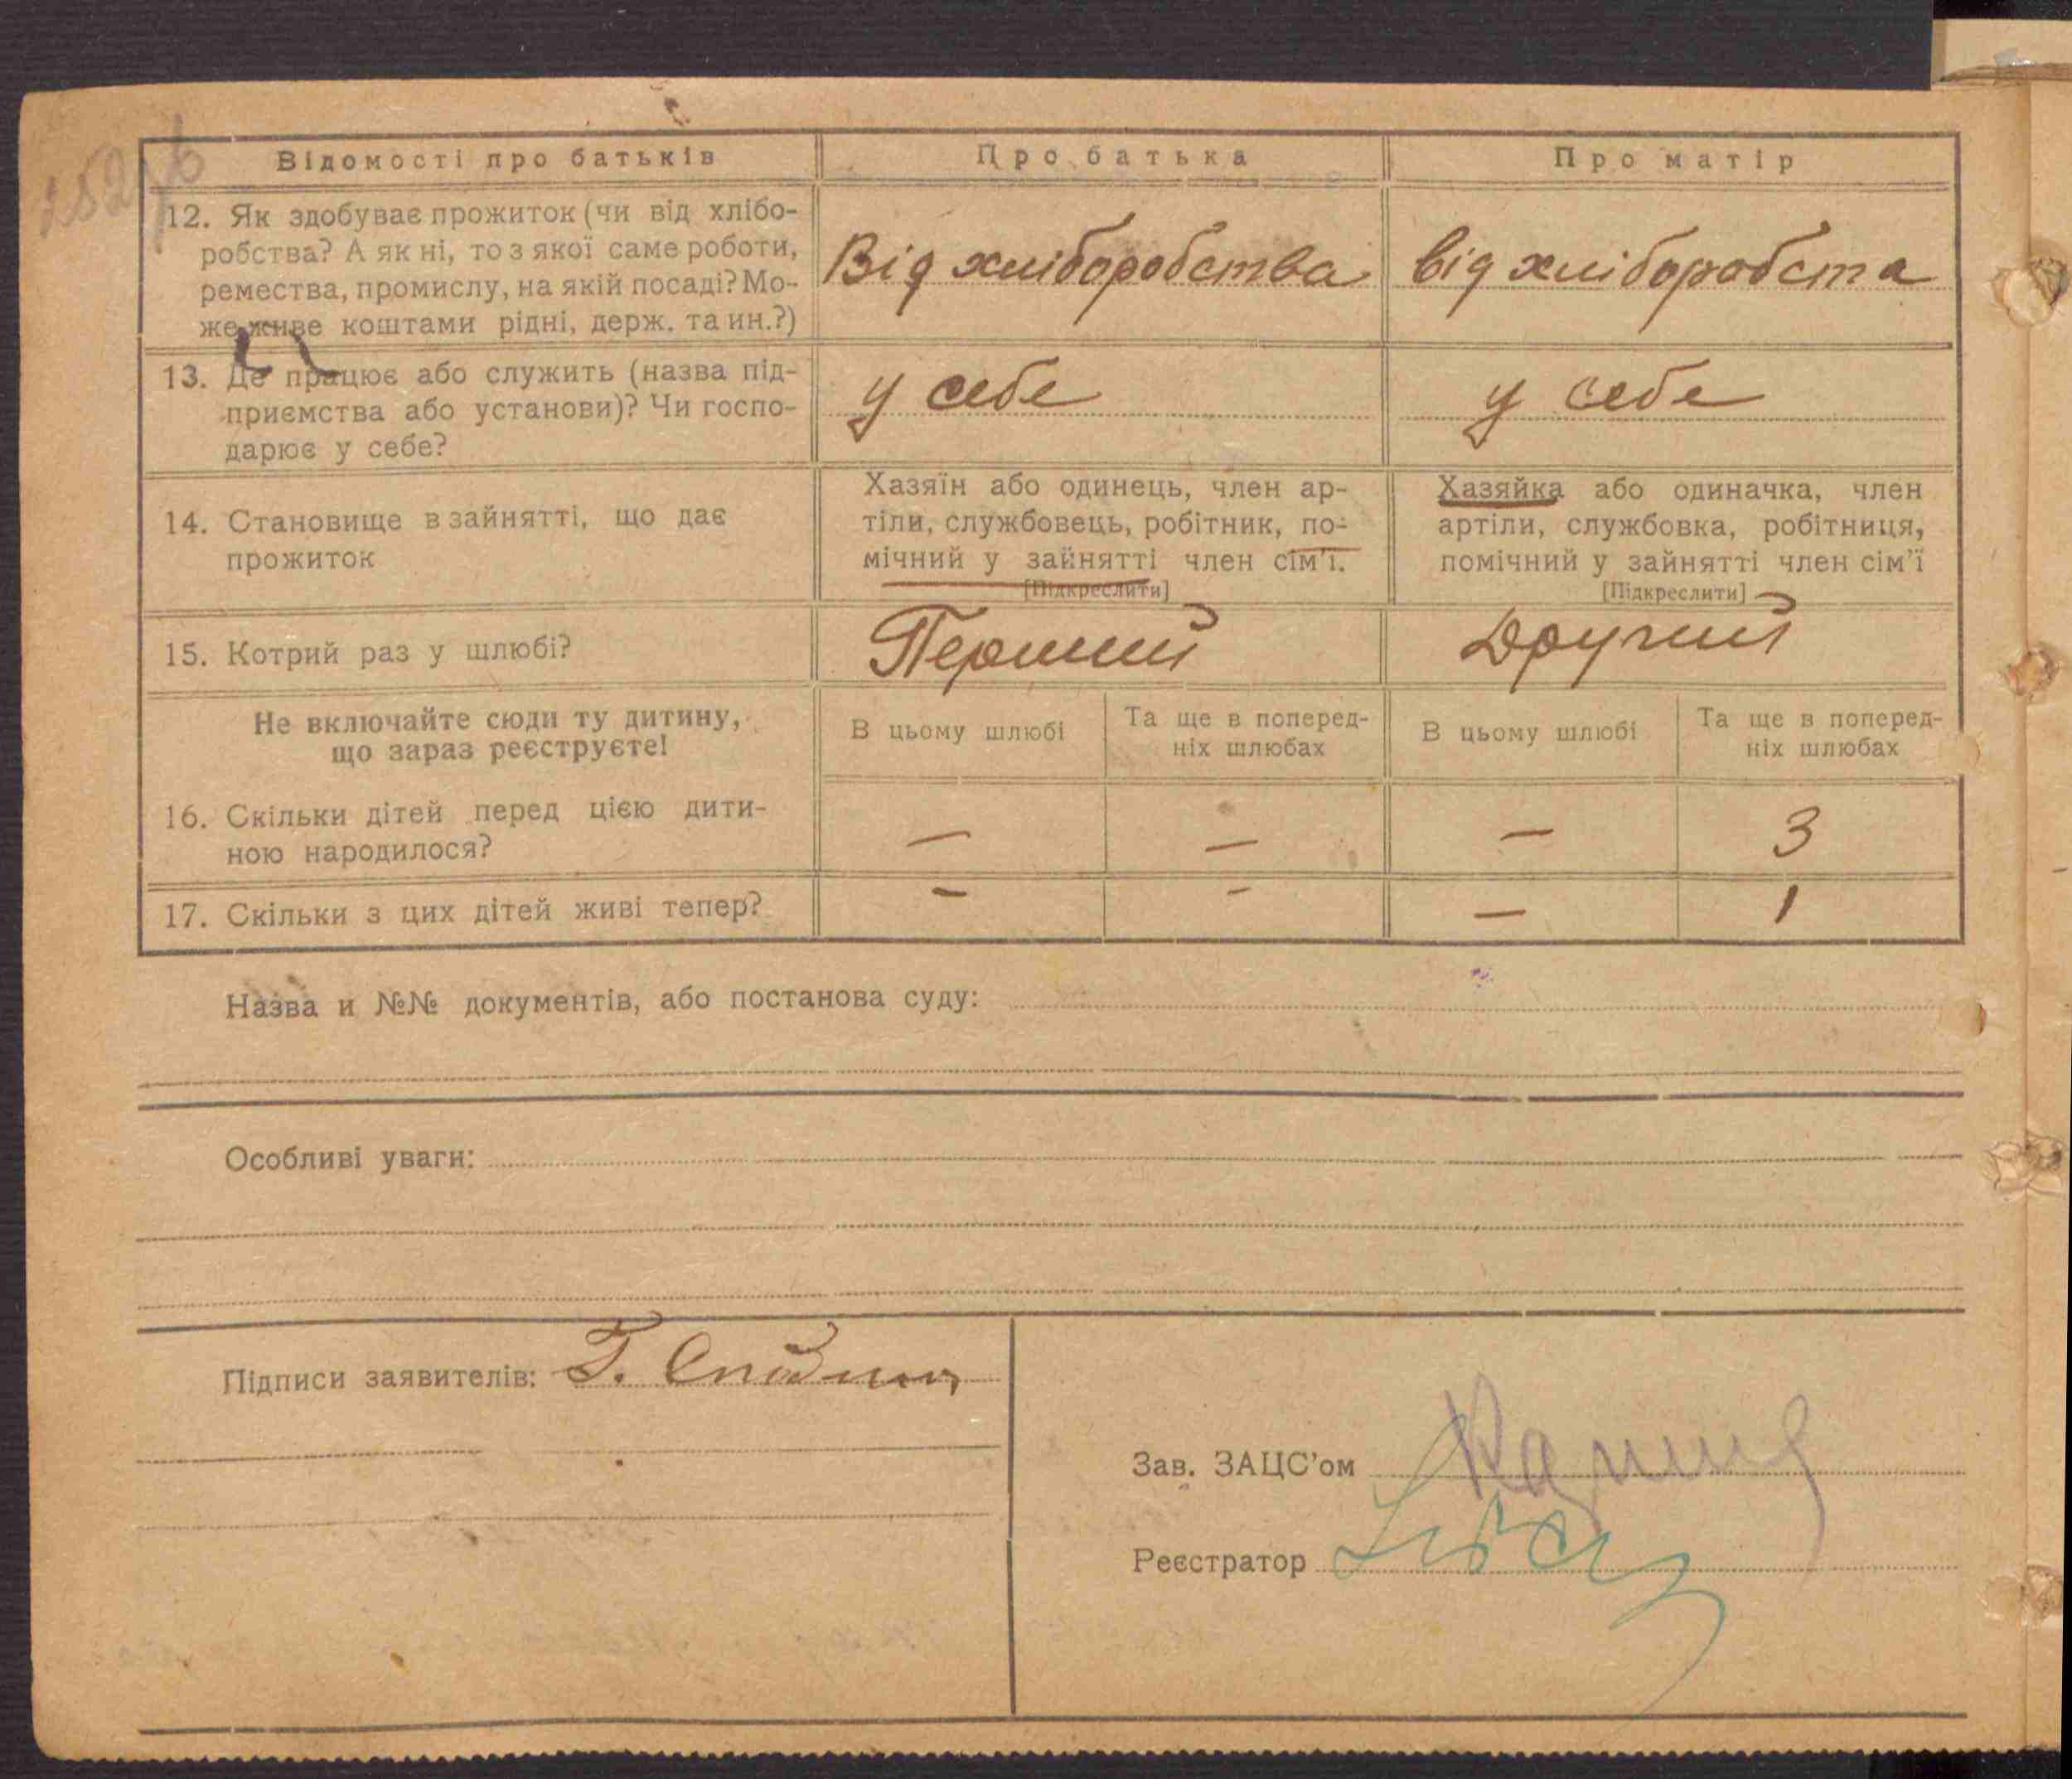 Відомості про батьків
Про батька
Про матір
12. Як здобуває прожиток (чи від хлібо-
робства? А як ні, то з якої саме роботи,
ремества, промислу, на якій посаді? Мо-
же живе коштами рідні, держ. та ин.?)
Від хліборобства
від хліборобста
13. Де працює або служить (назва під-
приємства або установи)? Чи госпо-
дарює у себе?
у себе
у себе
14. Становище в зайнятті, що дає
прожиток
Хазяїн або одинець, член ар-
тіли, службовець, робітник, по-
мічний у зайнятті член сім'ї.
[Підкреслити]
Хазяйка або одиначка, член
артіли, службовка, робітниця,
помічний у зайнятті член сім'ї
[Підкреслити]
15. Котрий раз у шлюбі?
Перший
Другий
Не включайте сюди ту дитину,
що зараз реєструєте!
В цьому шлюбі
Та ще в поперед-
ніх шлюбах
В цьому шлюбі
Та ще в поперед-
ніх шлюбах
16. Скільки дітей перед цією дити-
ною народилося?
— — — 3
17. Скільки з цих дітей живі тепер?
- - — 1
Назва и №№ документів, або постанова суду:
Особливі уваги:
Підписи заявителів:
Зав. ЗАЦС'ом
Реєстратор